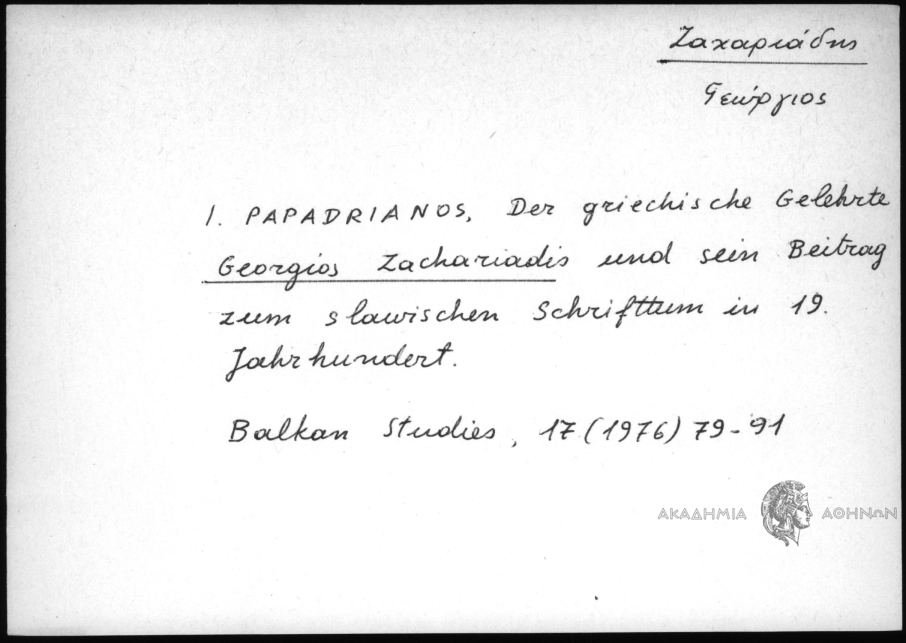 Ζαχαριάδης
Γεώργιος
I. PAPADRIANOS, Der griechische Gelehrte
Georgios Zachariadis und sein Beitrag
zum slawischen Schrifttum in 19.
Jahrhundert.
Balkan Studies, 17 (1976) 79-91
ΑΚΑΔΗΜΙΑ ΑΘΗΝΩΝ